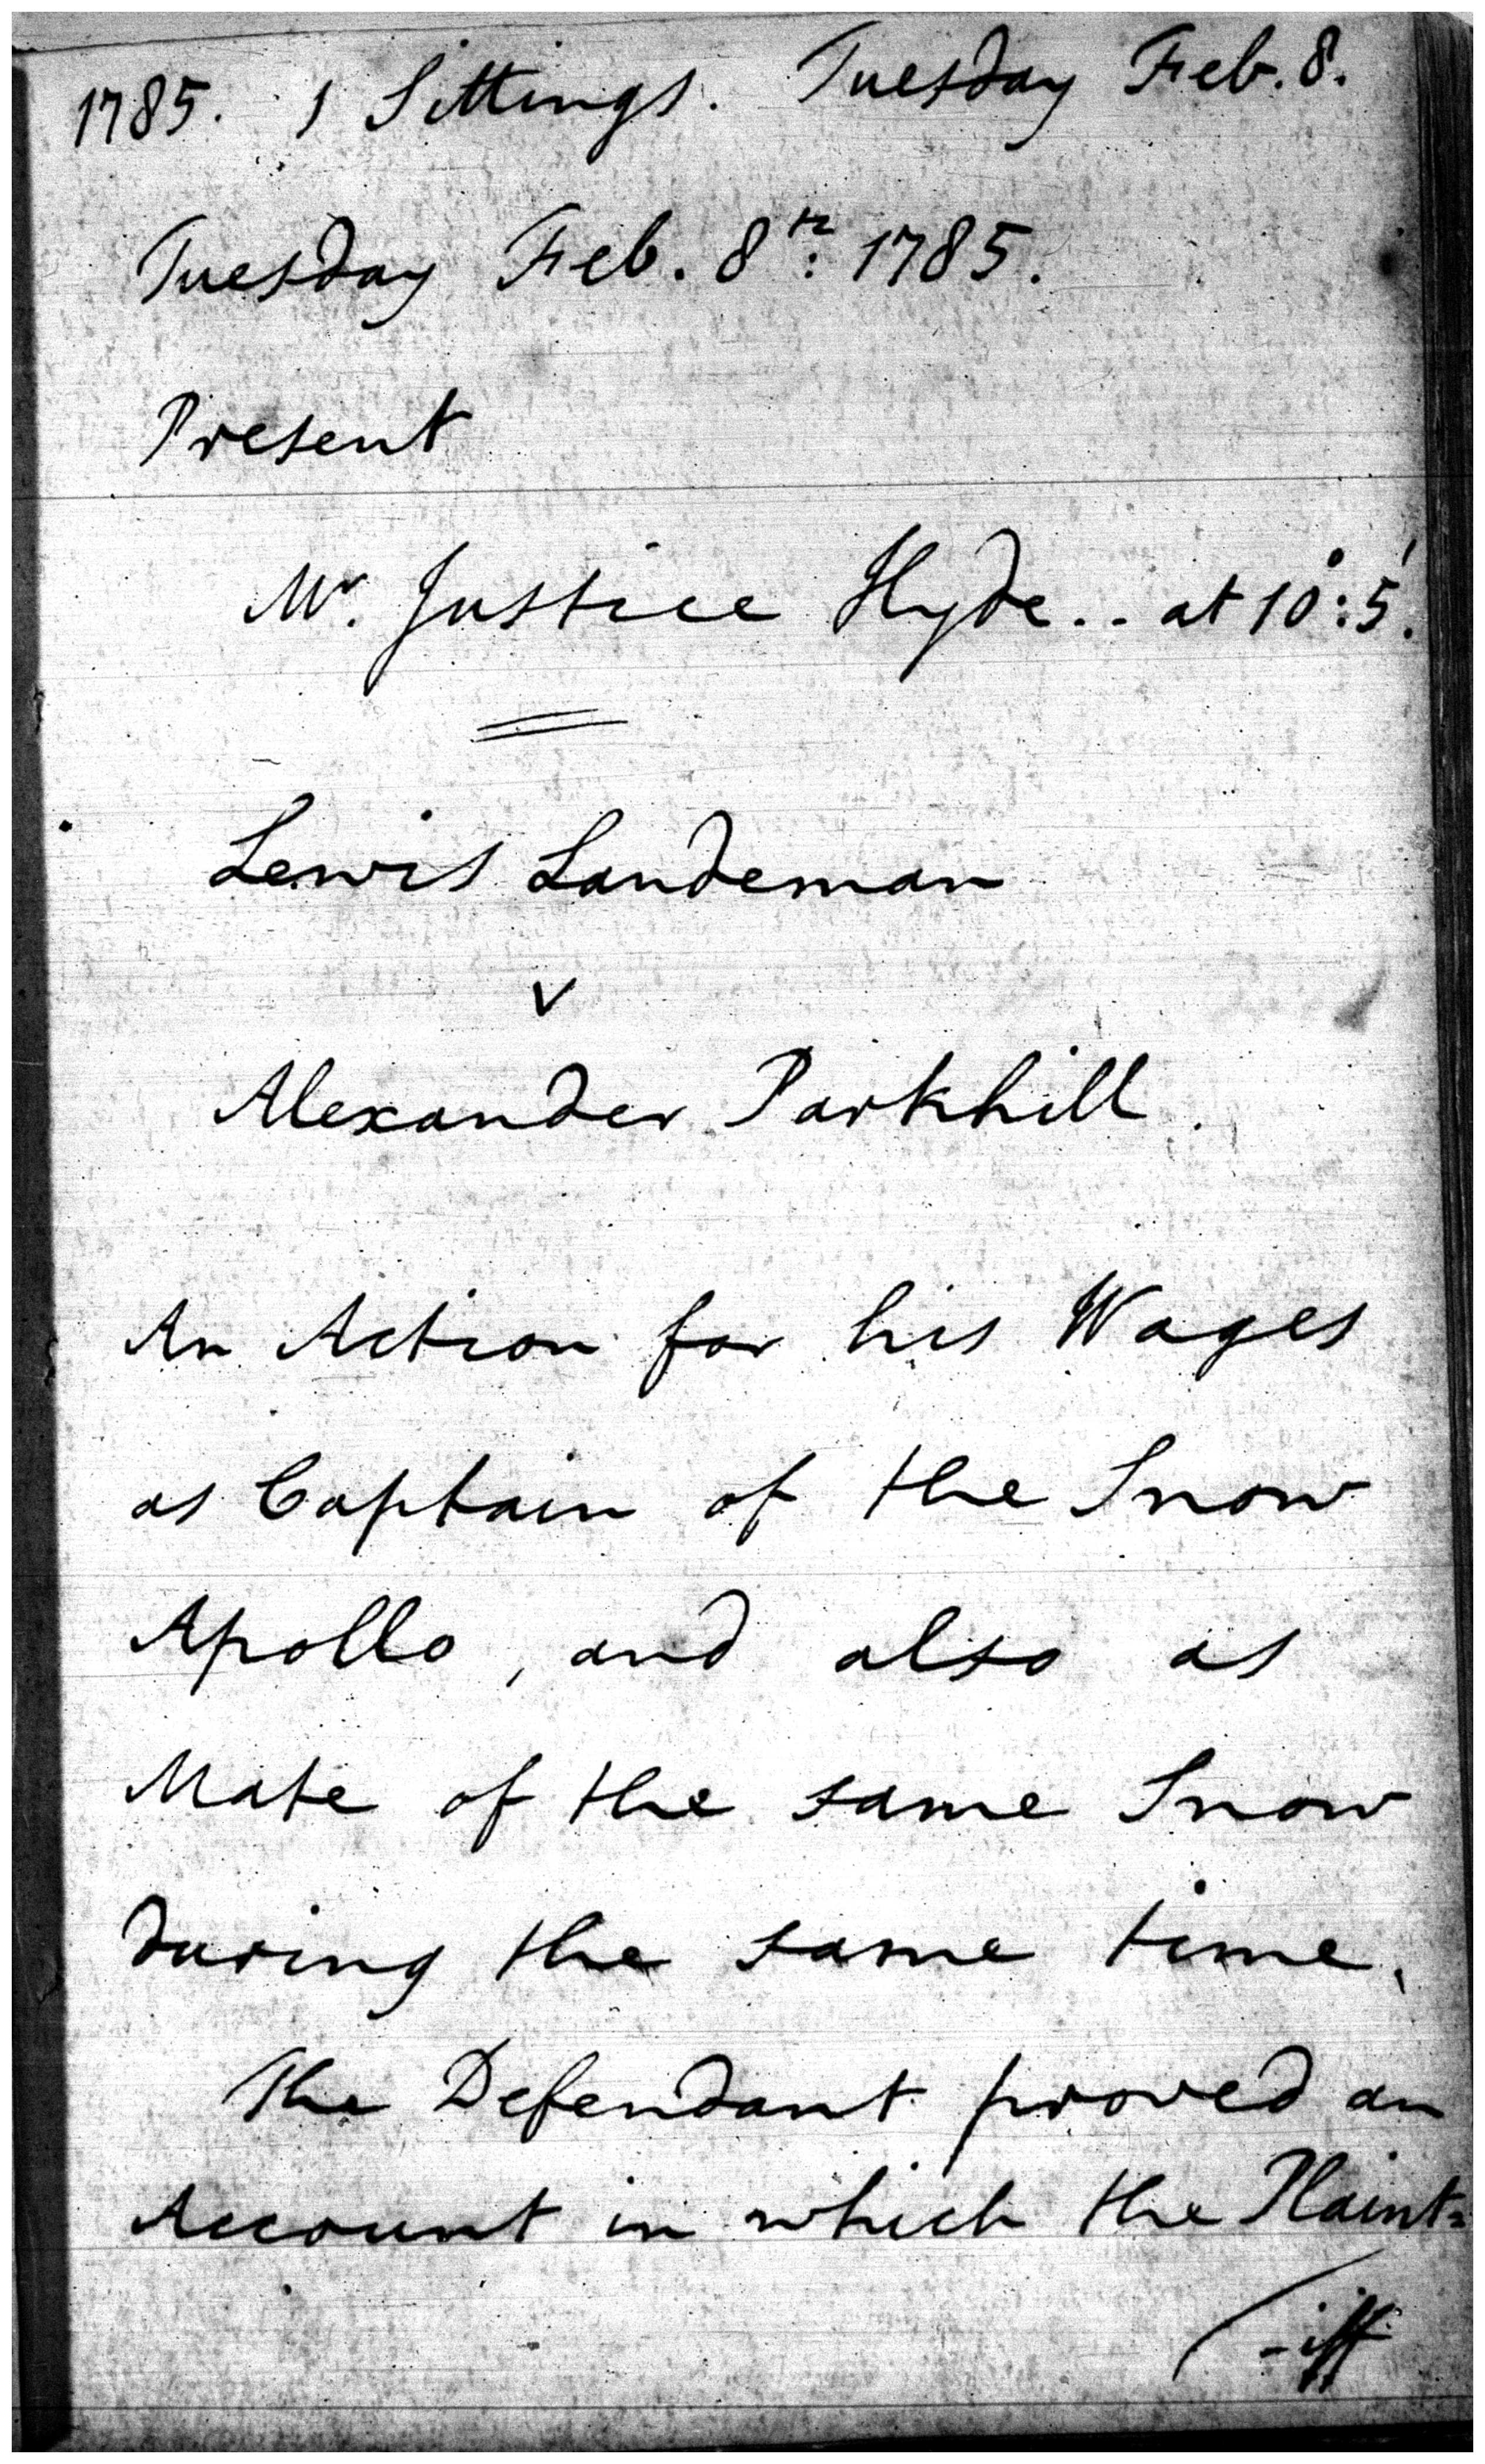 1785. 1 Sittings. Tuesday Feb. 8.
Tuesday Feb. 8th: 1785.
Present
Mr. Justice Hyde.. at 10°:5'.
Lewis Landeman
v
Alexander Parkhill.
An Action for his Wages
as Captain of the Snow
Apollo, and also as
Mate of the same Snow
during the same time.
The Defendant proved an
Account in which the Plaint=
-iff